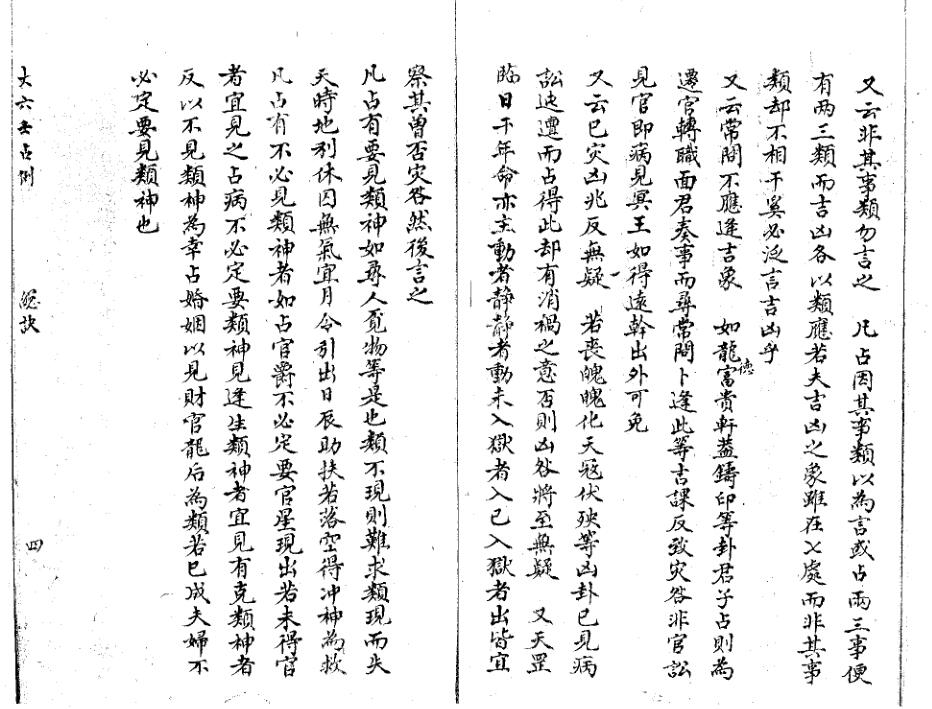 又云非其事類勿言之 凡占因其事類以為言或占兩三事便
有兩三類而吉凶各以類應若夫吉凶之象雖在𠔃處而非其事
類却不相干奚必泛言吉凶乎
又云常問不應逢吉象 如龍德富貴軒蓋鑄印等卦君子占則為
遷官轉職面君奏事而尋常問卜逢此等吉課反致灾咎非官訟
見官即病見冥王如得遠幹出外可免
又云已灾凶兆反無疑 若喪魄魄化天寇伏殃等凶卦已見病
訟迍邅而占得此却有消禍之意否則凶咎將至無疑 又天罡
臨日干年命亦主動者静静者動未入獄者入已入獄者出皆宜
察其曾否灾咎然後言之
凡占有要見類神如尋人覓物等是也類不現則難求類現而失
天時地利休囚無氣宜月令引出日辰助扶若落空得冲神為救
凡占有不必見類神者如占官爵不必定要官星現出若未得官
者宜見之占病不必定要類神見逢生類神者宜見有克類神者
反以不見類神為幸占婚姻以見財官龍后為類若已成夫婦不
必定要見類神也
大六壬占例 總訣 四